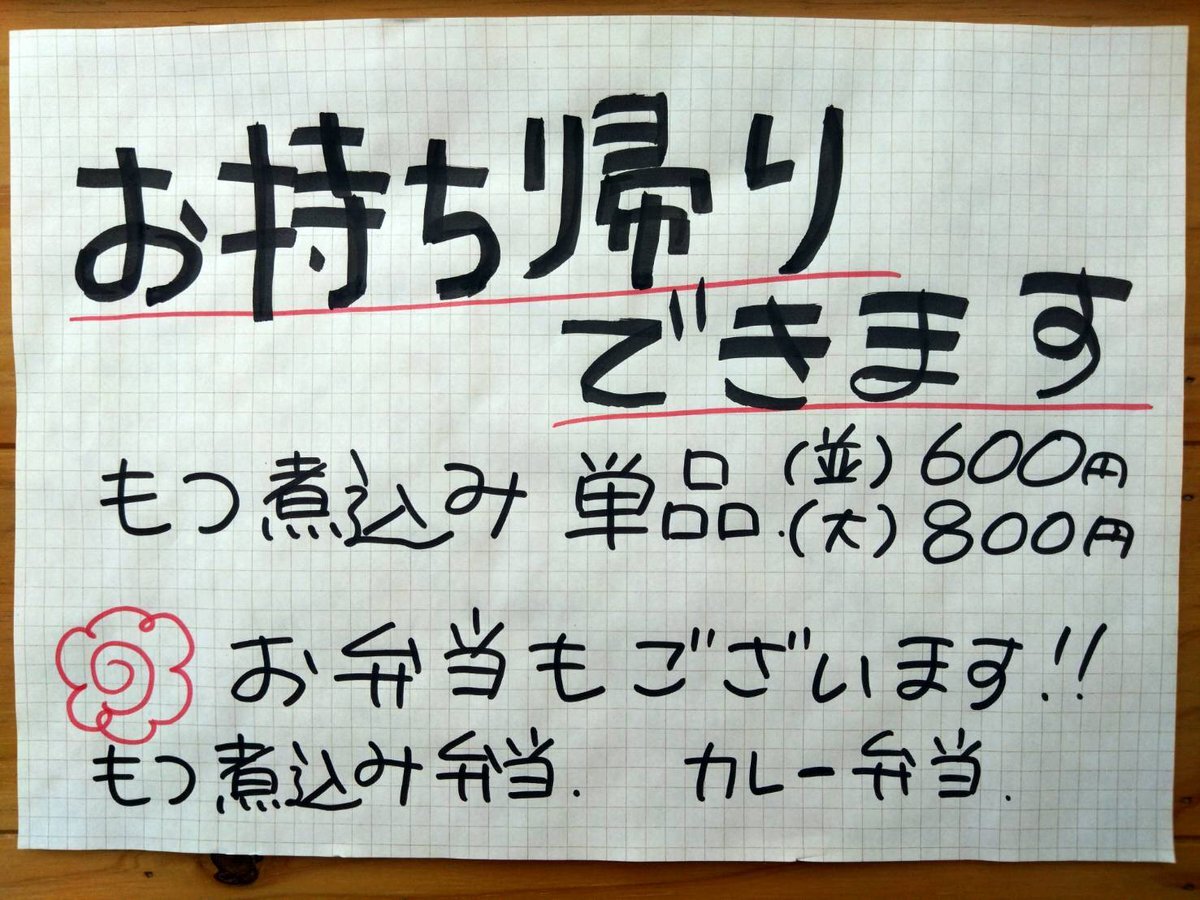 お持ち帰り
できます
もつ煮込み 単品.(並)600円
(大)800円
お弁当もございます!!
もつ煮込み弁当. カレー弁当.